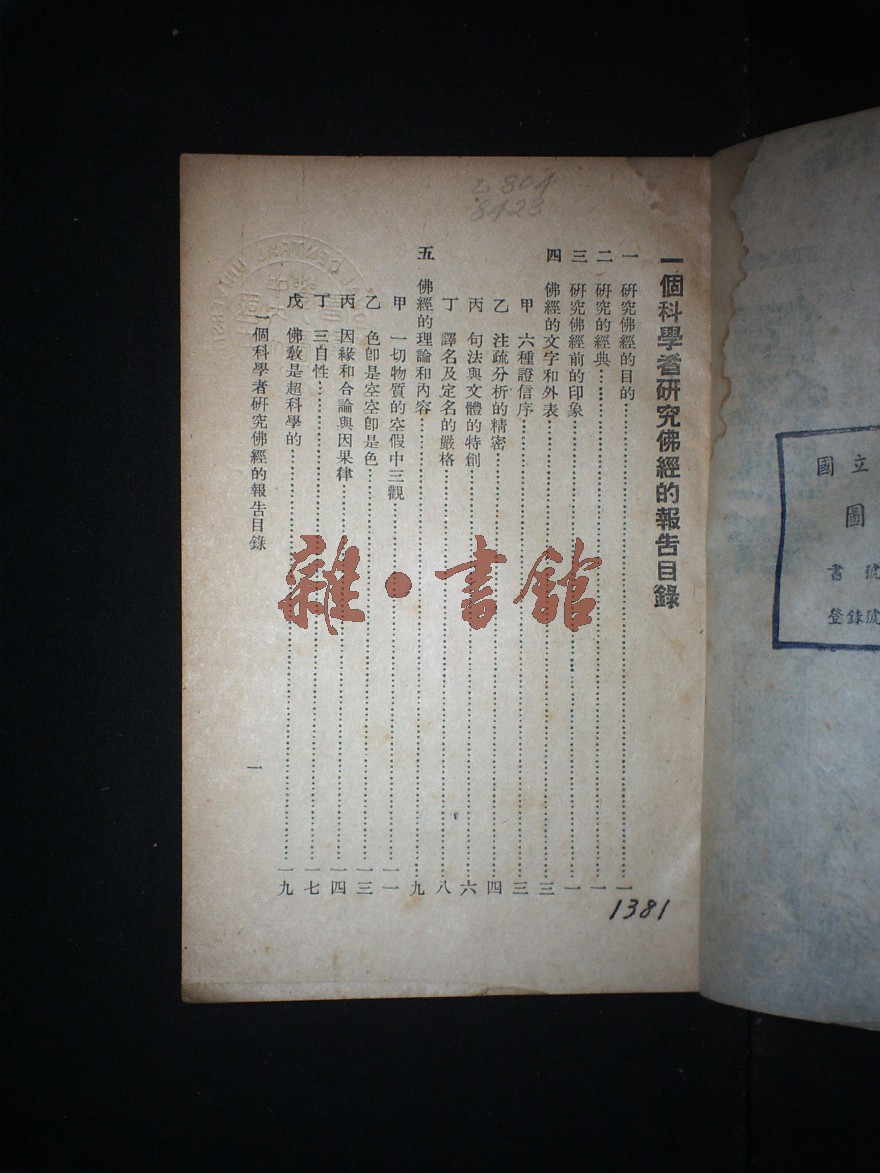 乙 804
8423
一個科學者研究佛經的報告目錄
一 研究佛經的目的………一
二 研究的經典………一
三 研究佛經前的印象………一
四 佛經的文字和外表………三
甲 六種證信序………三
乙 注疏分析的精密………四
丙 句法與文體的特創………六
丁 譯名及定名的嚴格………八
五 佛經的理論和內容………九
甲 一切物質的空假中三觀………一一
乙 色卽是空空卽是色………一三
丙 因緣和合論與因果律………一四
丁 三自性………一七
戊 佛敎是超科學的………一九
一個科學者研究佛經的報告目錄
一
1381
雜·書館
國立
圖
書 號
登錄號